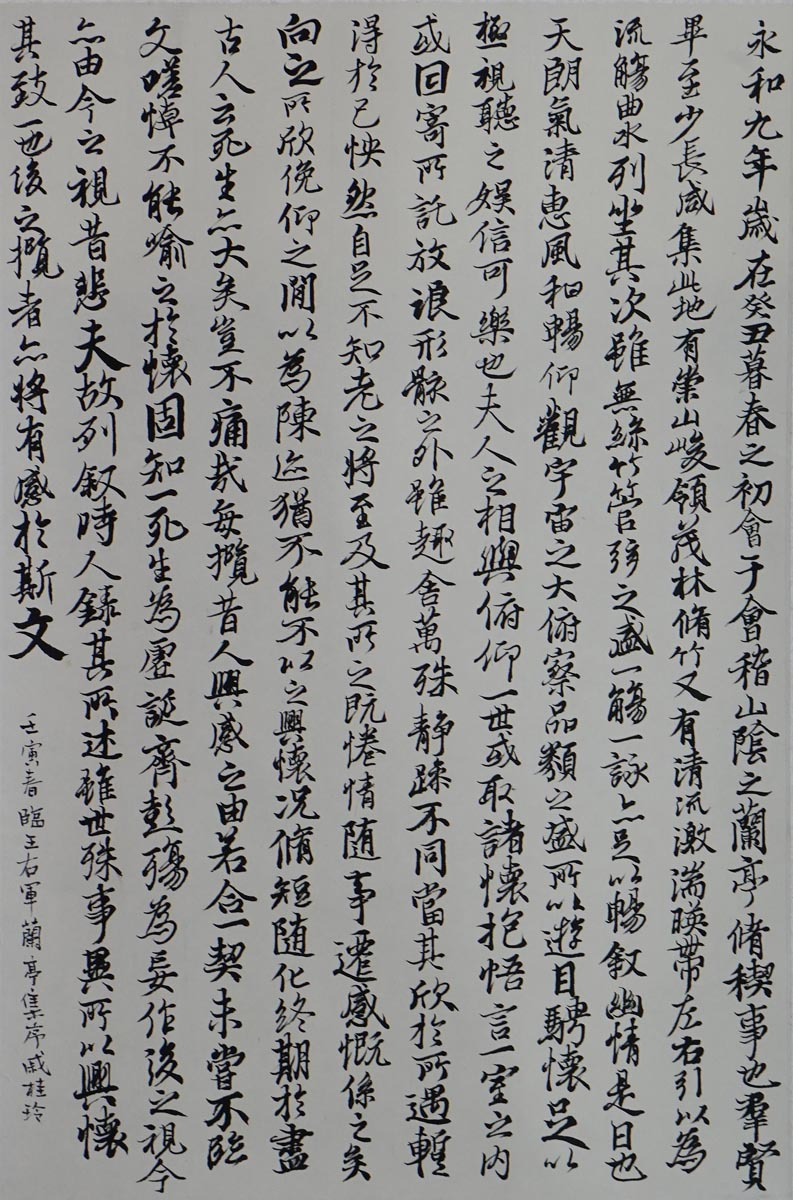 永和九年歲在癸丑暮春之初會于會稽山陰之蘭亭脩稧事也羣賢
畢至少長咸集此地有崇山峻領茂林脩竹又有清流激湍暎帶左右引以為
流觴曲水列坐其次雖無絲竹管弦之盛一觴一詠亦足以暢叙幽情是日也
天朗氣清惠風和暢仰觀宇宙之大俯察品類之盛所以遊目騁懷足以
極視聽之娱信可樂也夫人之相與俯仰一世或取諸懷抱悟言一室之内
或因寄所託放浪形骸之外雖趣舍萬殊静躁不同當其欣於所遇暫
得於己怏然自足不知老之將至及其所之既惓情随事遷感慨係之矣
向之所欣俛仰之間以為陳迹猶不能不以之興懷況脩短随化終期於盡
古人云死生亦大矣豈不痛哉每攬昔人興感之由若合一契未嘗不臨
文嗟悼不能喻之於懷固知一死生為虛誕齊彭殤為妄作後之視今
亦由今之視昔悲夫故列叙時人錄其所述雖世殊事異所以興懷
其致一也後之攬者亦將有感於斯文
壬寅春臨王右軍蘭亭集序戚桂玲